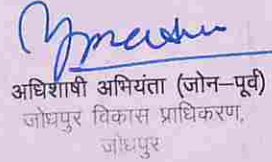 अधिशाषी अभियंता (जोन–पूर्व)
जोधपुर विकास प्राधिकरण,
जोधपुर